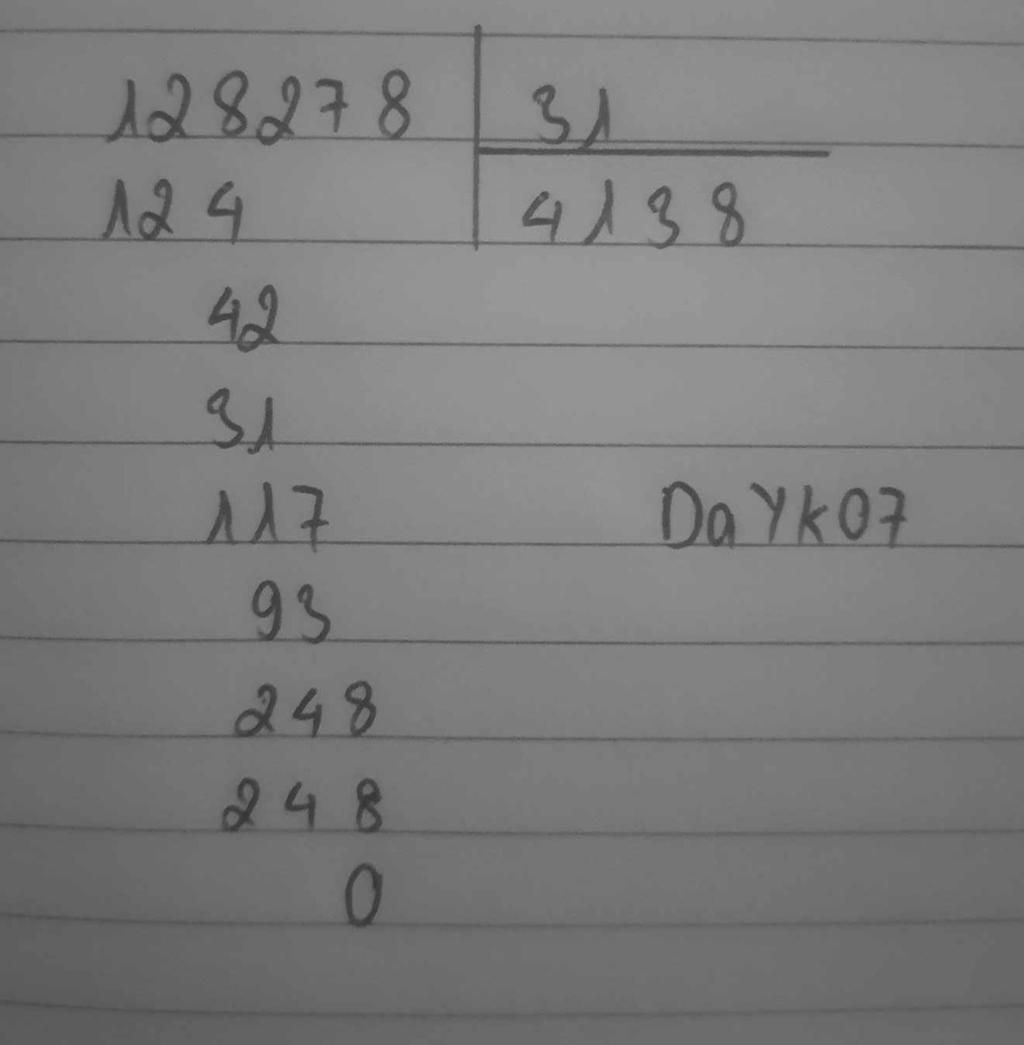 128278 31
124 4138
42
31
117 DaYk07
93
248
248
0